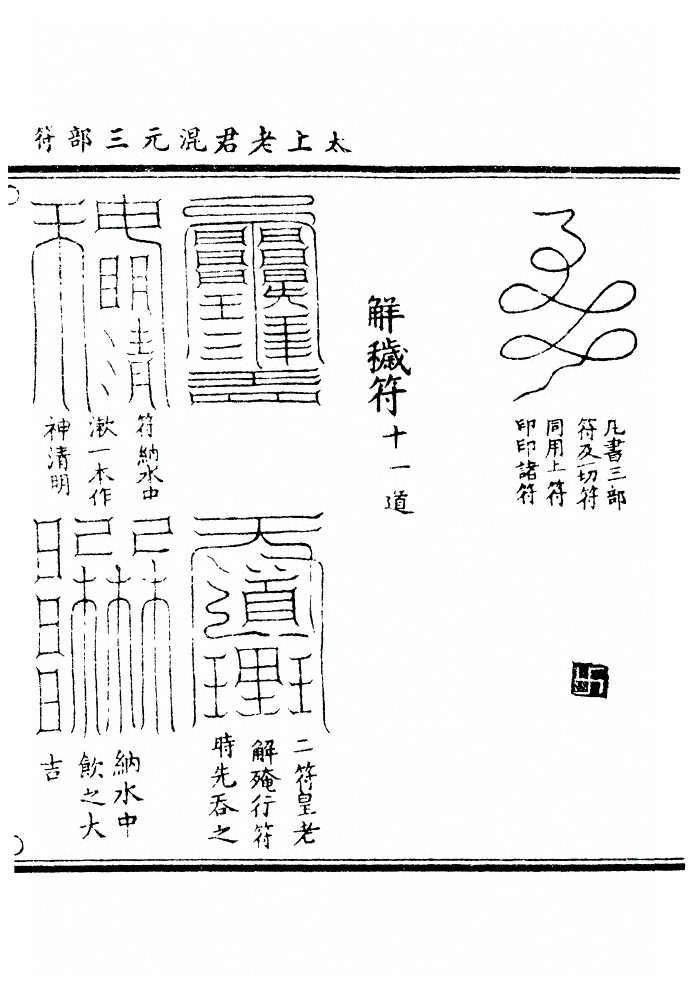 太上老君混元三部符
凡書三部
符及一切符
同用上符
印印諸符
解穢符十一道
二符皇老
解殗行符
時先吞之
符納水中
漱一本作
神清明
納水中
飲之大
吉